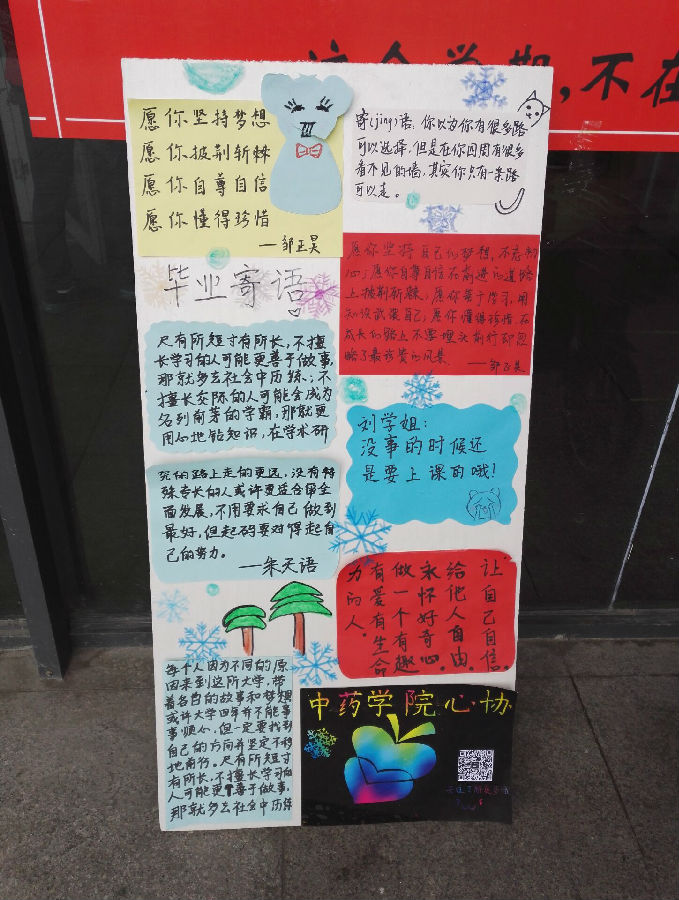 这个学期,不在
愿你坚持梦想
愿你披荆斩棘
愿你自尊自信
愿你懂得珍惜
——邹正昊
寄(jing)语:你以为你有很多路
可以选择,但是在你四周有很多
看不见的墙,其实你只有一条路
可以走。
毕业寄语
愿你坚持自己的梦想,不忘初
心;愿你自尊自信在前进的道路
上披荆斩棘;愿你善于学习,用
知识武装自己;愿你懂得珍惜,在
成长的路上不要埋头前行却忽
略了最珍贵的风景
——邹正昊
尺有所短寸有所长,不擅
长学习的人可能更善于做事,
那就多去社会中历练;不
擅长交际的人可能会成为
名列前茅的学霸,那就更
用心地钻知识,在学术研
究的路上走的更远,没有特
殊专长的人或许更适合全
面发展,不用要求自己做到
最好,但起码要对得起自
己的努力。
——朱天语
刘学姐:
没事的时候还
是要上课的哦!
让自己自信。
给他人自由。
永怀好奇心。
做一个有趣
有爱有生命
力的人。
每个人因为不同的原
因来到这所大学,带
着各自的故事和梦想
或许大学四年并不能事
事顺心,但一定要找到
自己的方向并坚定不移
地前行。尺有所短寸
有所长,不擅长学习的
人可能更善于做事,
那就多去社会中历练
中药学院心协